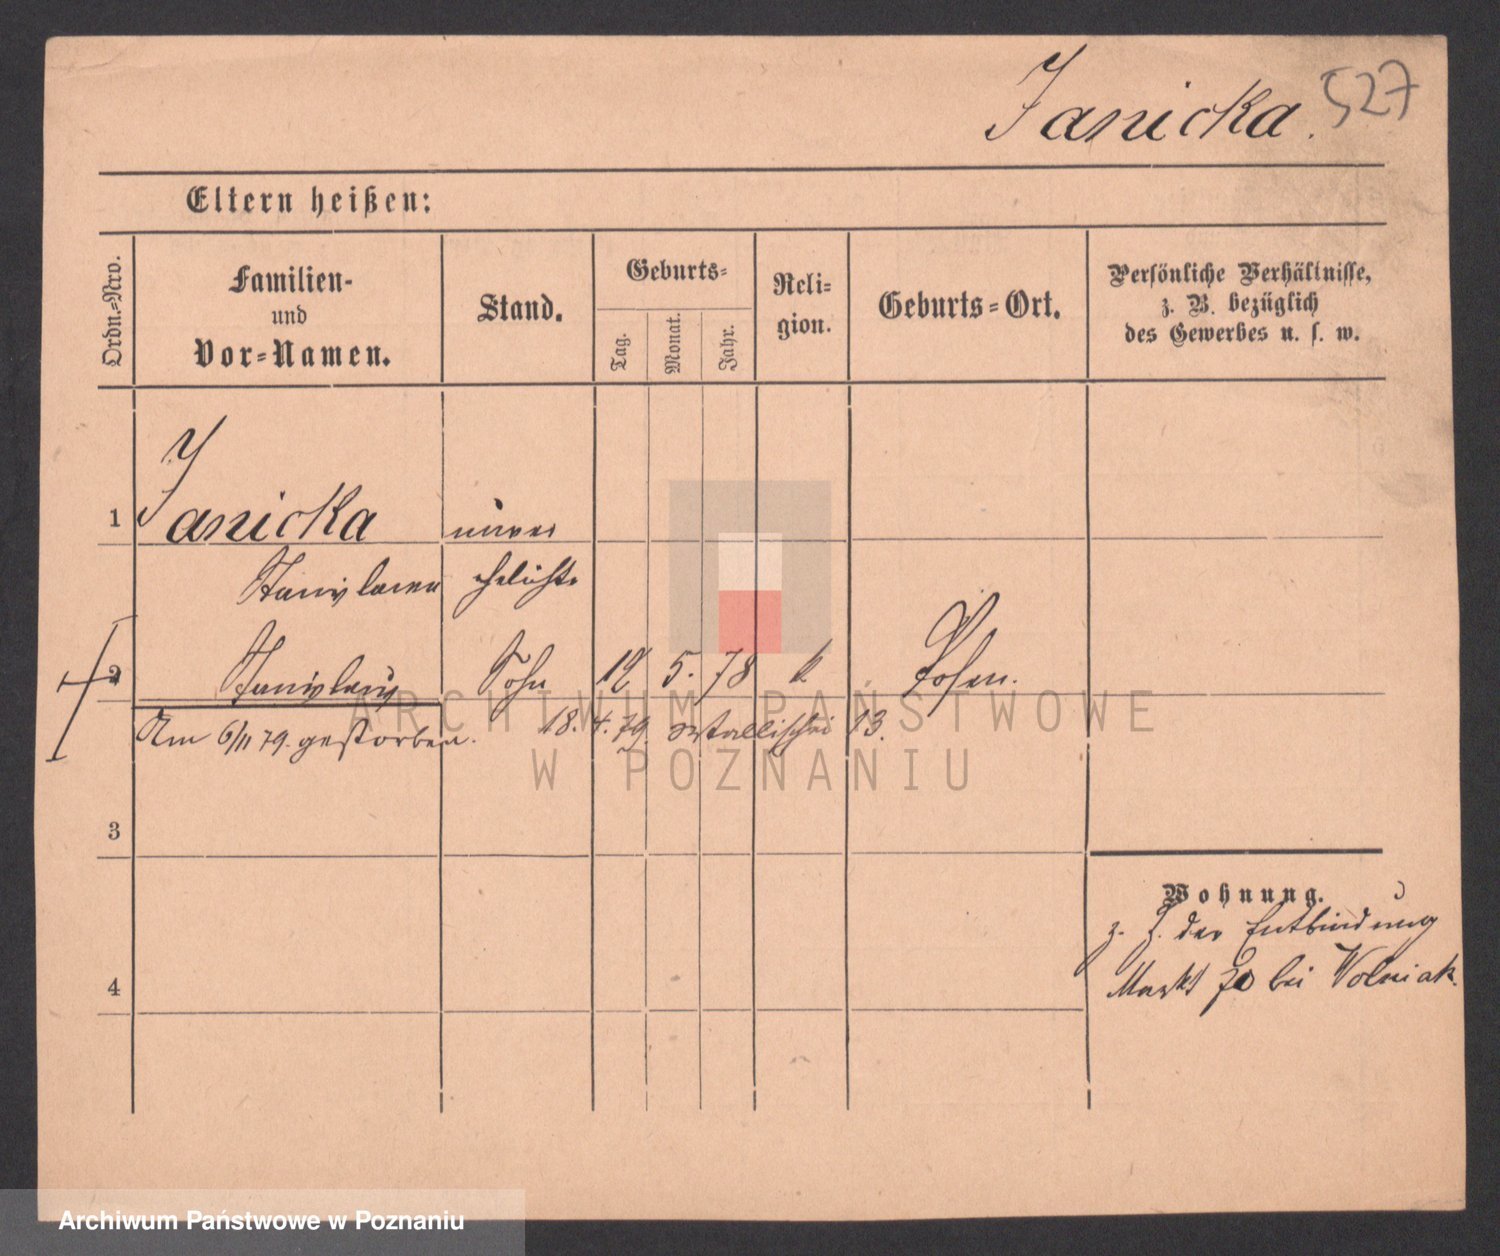 Janicka. 527
Eltern heißen:
Ordn.-Nro.
Familien-
und
Vor-Namen.
Stand.
Geburts-
Tag.
Monat.
Jahr.
Reli-
gion.
Geburts-Ort.
Persönliche Verhältnisse,
z. B. bezüglich
des Gewerbes u. s. w.
1 Janicka unver
ehelicht.
2 Stanislaus Sohn 12 5. 78 k. Posen.
Am 6/11 79. gestorben. 18. 4. 79. 13.
3
Wohnung.
z. Z. der Entbindung
4 Markt bei Wolniak.
ARCHIWUM PAŃSTWOWE
W POZNANIU
Archiwum Państwowe w Poznaniu